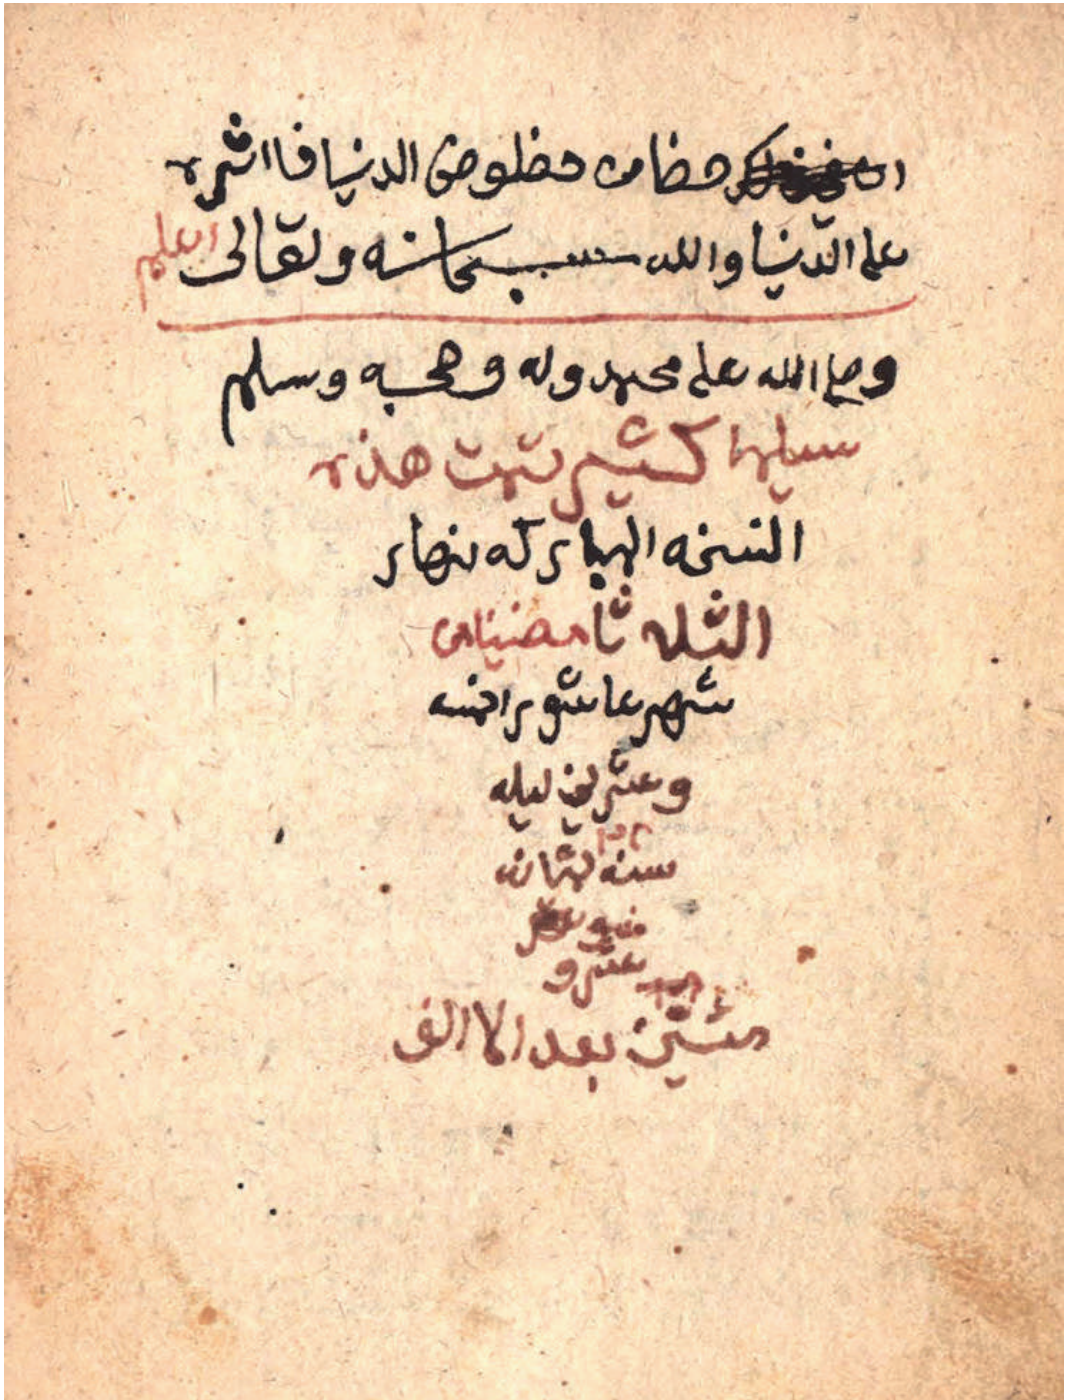 حضا من حظلوظ الدنيا فااشره
على الدنيا والله سبحانه وتعالى اعلم
وصلى الله على محمد وله وصحبه وسلم
سليما كثير تمت هذه
النسخه المباركه نهار
الثلاثا مضينا من
شهر عاشورا خمسه
وعشرين ليله
سنه ثمانه
عشر و
مئتين بعد الاالف